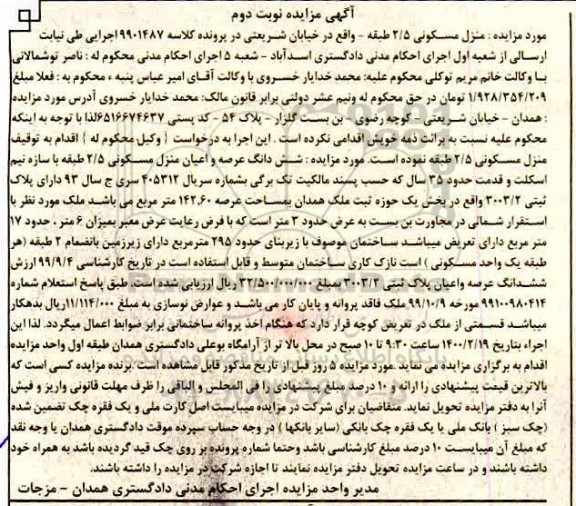 آگهی مزایده نوبت دوم
مورد مزایده : منزل مسکونی ۲/۵ طبقه - واقع در خیابان شریعتی در پرونده کلاسه ۹۹۰۱۴۸۷ اجرایی طی نیابت
ارسالی از شعبه اول اجرای احکام مدنی دادگستری اسدآباد - شعبه ۵ اجرای احکام مدنی محکوم له : ناصر توشمالانی
با وکالت خانم مریم توکلی محکوم علیه: محمد خدایار خسروی با وکالت آقای امیر عباس پنبه ، محکوم به : فعلا مبلغ
۱/۹۲۸/۳۵۴/۲۰۹ تومان در حق محکوم له ونیم عشر دولتی برابر قانون مالک: محمد خدایار خسروی آدرس مورد مزایده
: همدان - خیابان شریعتی - کوچه رضوی - بن بست گلزار - پلاک ۵۴ - کد پستی ۶۵۱۶۶۷۴۶۳۷لذا با توجه به اینکه
محکوم علیه نسبت به برائت ذمه خویش اقدامی نکرده است . این اجرا به درخواست { وکیل محکوم له } اقدام به توقیف
منزل مسکونی ۲/۵ طبقه نموده است. مورد مزایده : شش دانگ عرصه و اعیان منزل مسکونی ۲/۵ طبقه با سازه نیم
اسکلت و قدمت حدود ۳۵ سال که حسب پسند مالکیت تک برگی بشماره سریال ۴۰۵۳۱۲ سری ج سال ۹۳ دارای پلاک
ثبتی ۳۰۰۳/۲ واقع در بخش یک حوزه ثبت ملک همدان بمساحت عرصه ۱۴۲,۶۰ متر مربع می باشد ملک مورد نظر با
استقرار شمالی در مجاورت بن بست به عرض حدود ۳ متر است که با فرض رعایت عرض معبر بمیزان ۶ متر ، حدود ۱۷
متر مربع دارای تعریض میباشد ساختمان موصوف با زیربنای حدود ۲۹۵ مترمربع دارای زیرزمین بانضمام ۲ طبقه (هر
طبقه یک واحد مسکونی ) است نازک کاری ساختمان متوسط و قابل استفاده است در تاریخ کارشناسی ۹۹/۹/۴ ارزش
ششدانگ عرصه واعیان پلاک ثبتی ۳۰۰۳/۲ بمبلغ ۳۲/۵۰۰/۰۰۰/۰۰۰ ریال ارزیابی شده است. طبق پاسخ استعلام شماره
۹۹۱۰۰۹۸۰۴۱۴ مورخه ۹۹/۱۰/۹ ملک فاقد پروانه و پایان کار می باشد و عوارض نوسازی به مبلغ ۱۱/۱۱۴/۰۰۰ریال بدهکار
میباشد قسمتی از ملک در تعریض کوچه قرار دارد که هنگام اخذ پروانه ساختمانی برابر ضوابط اعمال میگردد. لذا این
اجراء بتاریخ ۱۴۰۰/۲/۱۹ ساعت ۹:۳۰ تا ۱۰ صبح در محل بالا تر از آرامگاه بوعلی دادگستری همدان طبقه اول واحد مزایده
اقدام به برگزاری مزایده می نماید .مورد مزایده ۵ روز قبل از تاریخ مذکور قابل مشاهده است .برنده مزایده کسی است که
بالاترین قیمت پیشنهادی را ارائه و ۱۰ درصد مبلغ پیشنهادی را فی المجلس و الباقی را ظرف مهلت قانونی واریز و فیش
آنرا به دفتر مزایده تحویل نماید. متقاضیان برای شرکت در مزایده میبایست اصل کارت ملی و یک فقره چک تضمین شده
(چک سبز ) بانک ملی یا یک فقره چک بانکی (سایر بانکها ) در وجه حساب سپرده موقت دادگستری همدان یا وجه نقد
که مبلغ آن میبایست ۱۰ درصد مبلغ کارشناسی باشد وحتما شماره پرونده بر روی چک قید گردیده باشد به همراه خود
داشته باشند و در ساعت مزایده تحویل دفتر مزایده نمایند تا اجازه شرکت در مزایده را داشته باشند.
مدیر واحد مزایده اجرای احکام مدنی دادگستری همدان - مزجات